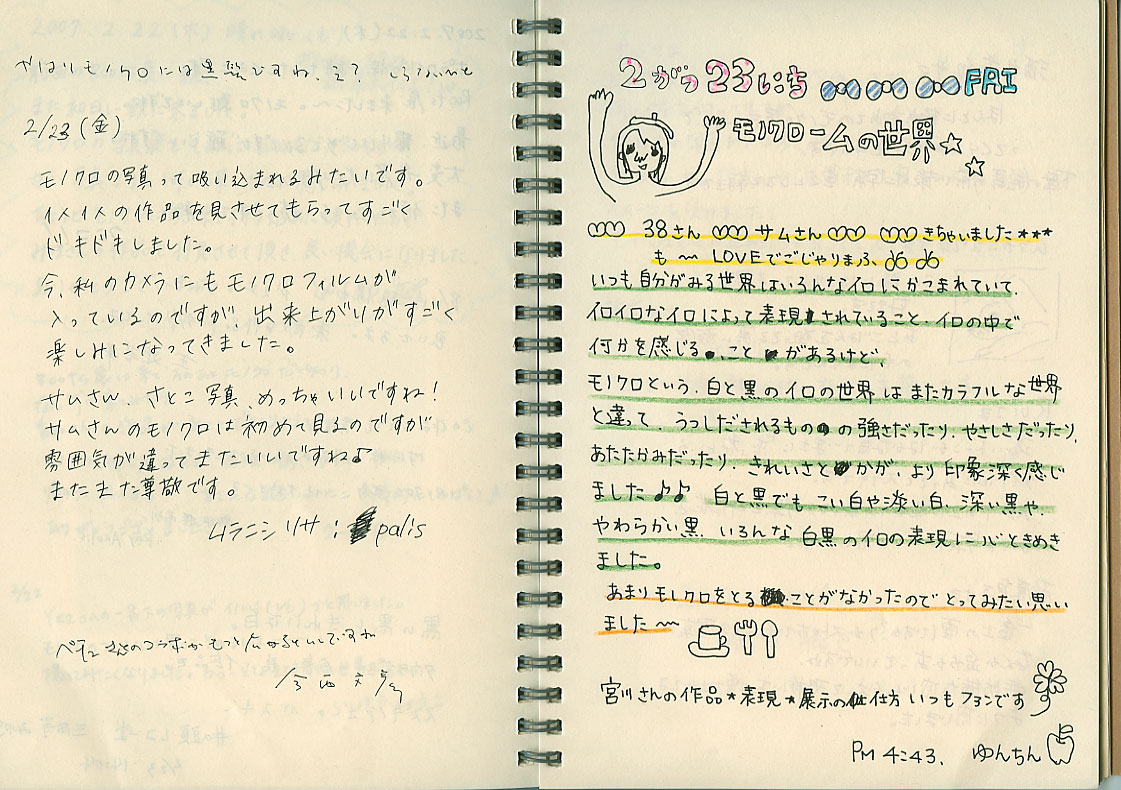 やはりモノクロには黒髪ですね、え?
2/23(金)
モノクロの写真って吸い込まれるみたいです。
イメイメの作品を見させてもらってすごく
ドキドキしました。
今、私のカメラにもモノクロフィルムが
入っているのですが、出来上がりがすごく
楽しみになってきました。
サムさん、さとこ写真、めっちゃいいですね!
サムさんのモノクロは初めて見るのですが
雰囲気が違ってまたいいですね♪
またまた尊敬です。
ムラニシ リサ: palis
もっと広がるといいですね
2がつ23にち FRI
モノクロームの世界☆
38さん サムさん きちゃいました***
も〜 LOVEでごじゃりまふ
いつも自分がみる世界はいろんなイロにかこまれていて、
イロイロなイロによって表現されていること、イロの中で
何かを感じることがあるけど、
モノクロという、白と黒のイロの世界はまたカラフルな世界
と違って、うつしだされるものの強さだったり、やさしさだったり、
あたたかみだったり、きれいさとかが、より印象深く感じ
ました♪♪ 白と黒でもこい白や淡い白、深い黒や、
やわらかい黒、いろんな白黒のイロの表現に心ときめき
ました。
あまりモノクロをとることがなかったのでとってみたい思い
ました〜
宮川さんの作品★表現★展示の仕方いつもファンです
PM 4:43. ゆんちん